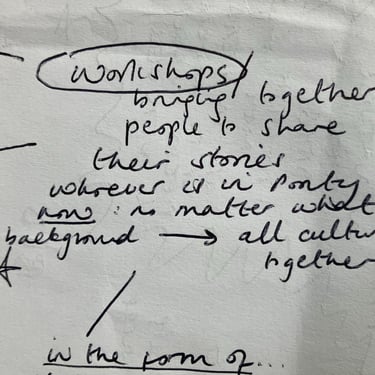 workshops
bringing together
people to share
their stories
whoever is in Ponty
now : no matter what
background → all cultu
together
in the form of...